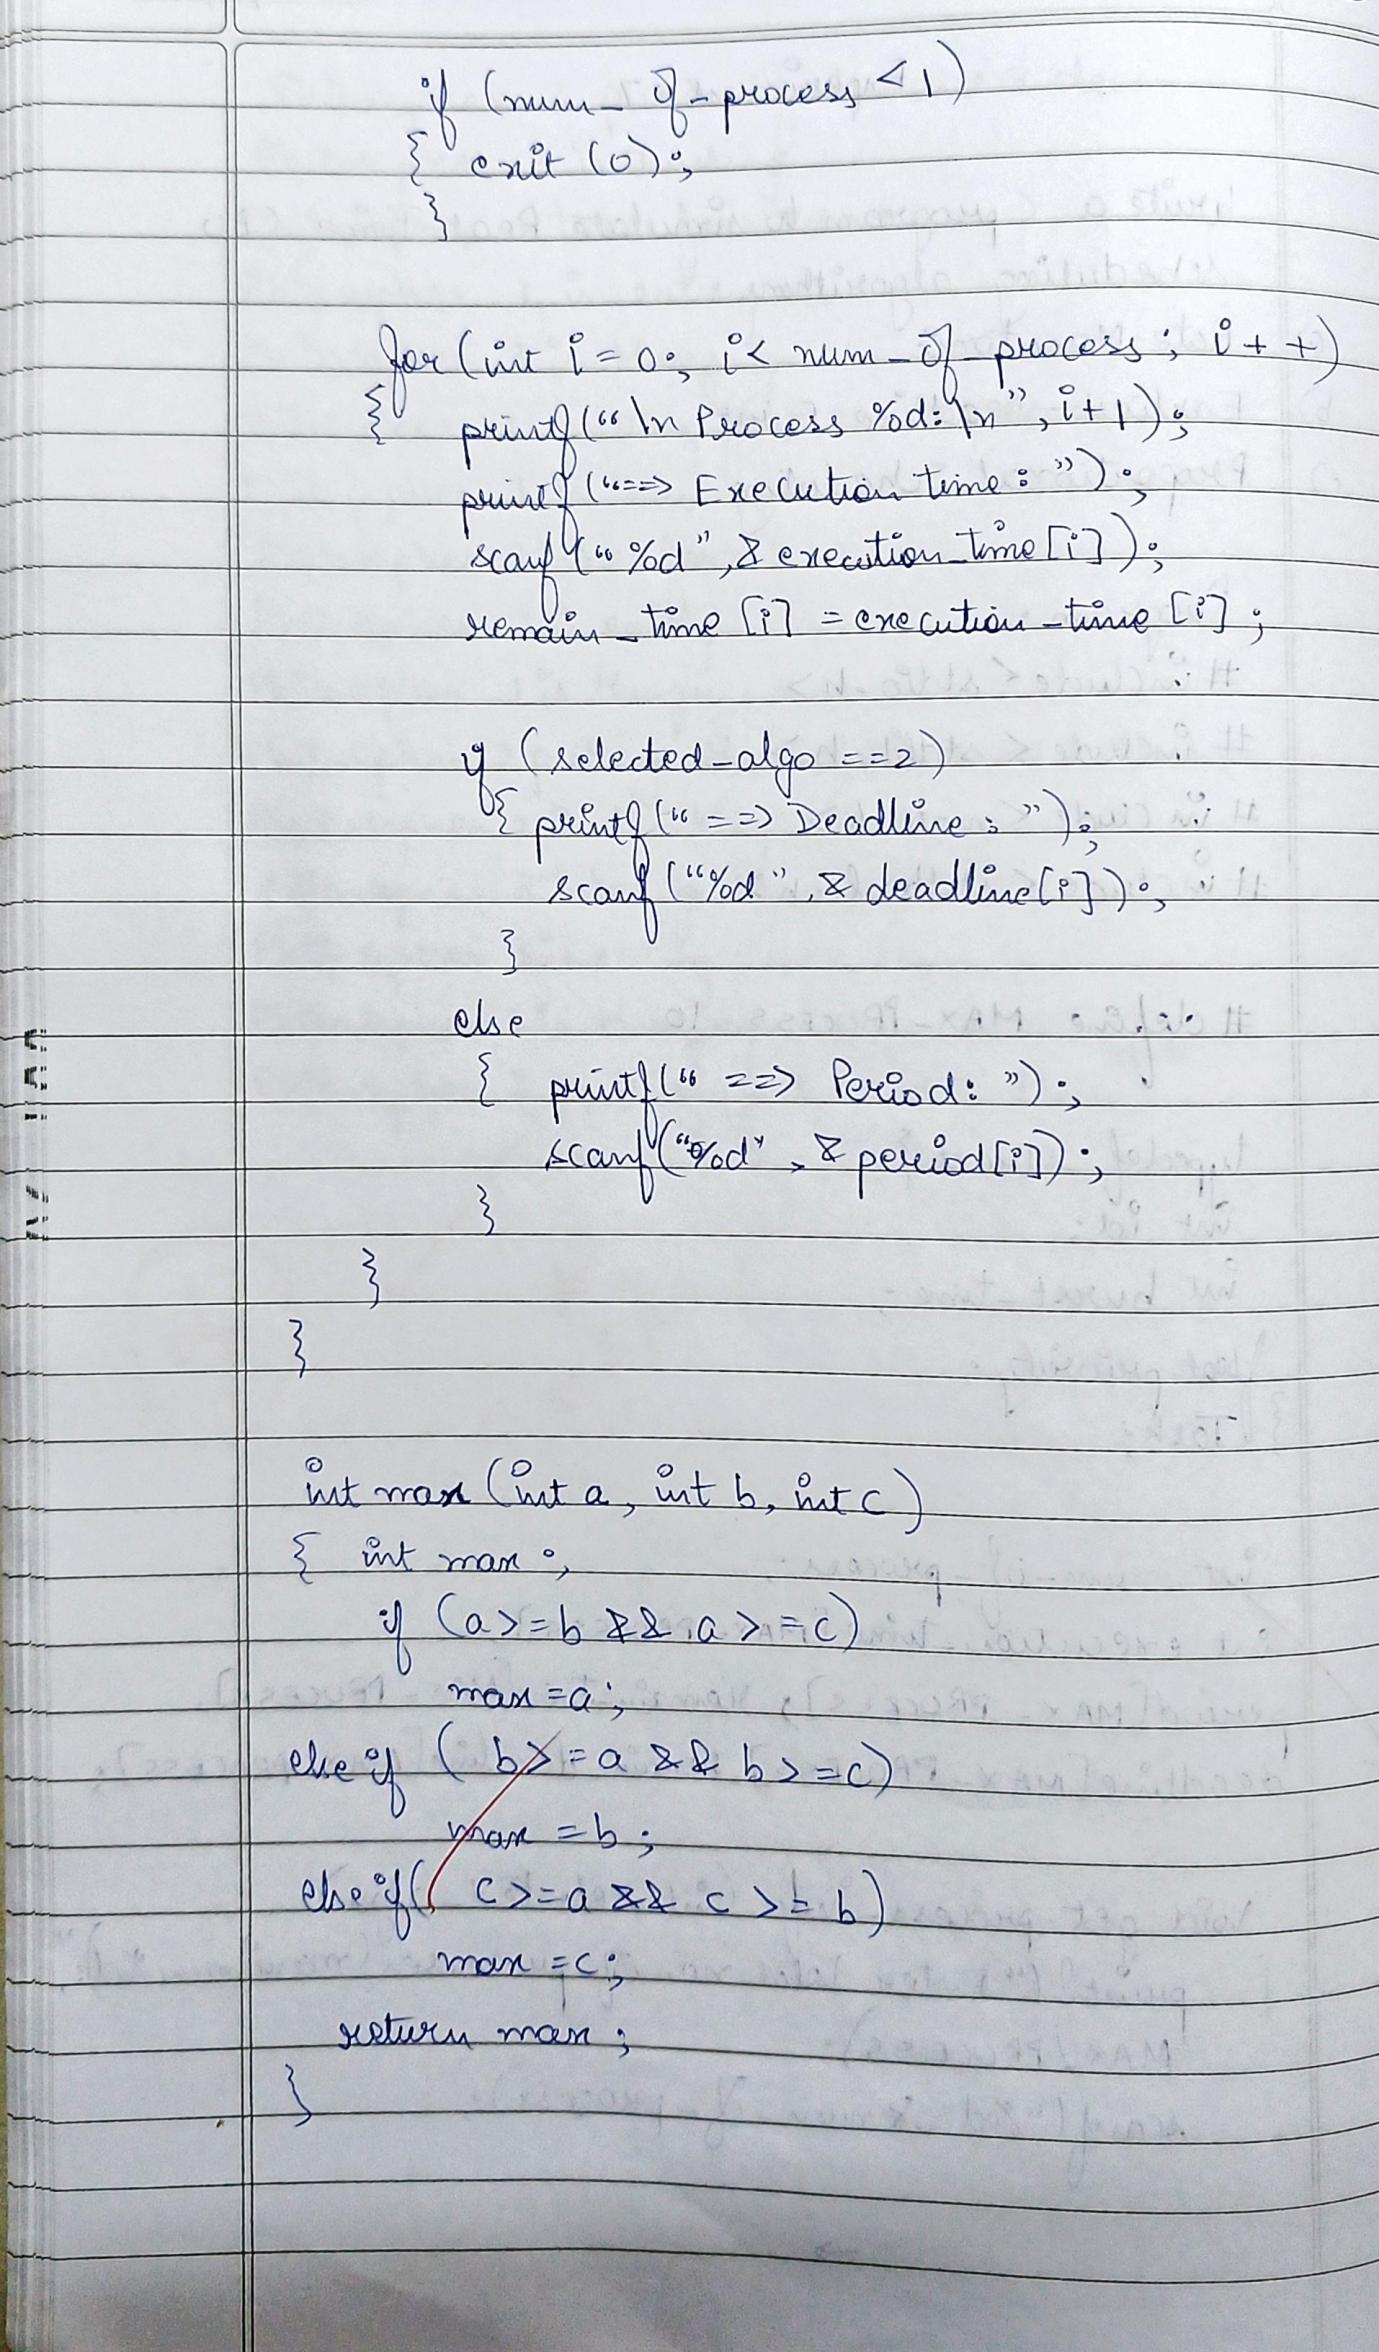 if (num_of_process < 1)
{ exit (0);
}
for (int i = 0; i < num_of_process; i++)
{ printf("\n Process %d:\n", i+1);
printf("==> Execution time: ");
scanf("%d", & execution_time[i]);
remain_time [i] = execution_time [i];
if (selected_algo ==2)
{ printf(" ==> Deadline: ");
scanf("%d", & deadline[i]);
}
else
{ printf(" ==> Period: ");
scanf("%d", & period[i]);
}
}
}
int max (int a, int b, int c)
{ int max;
if (a>=b && a >=c)
max=a;
else if ( b>=a && b>=c)
max =b;
else if( c>=a && c >= b)
max =c;
return max;
}